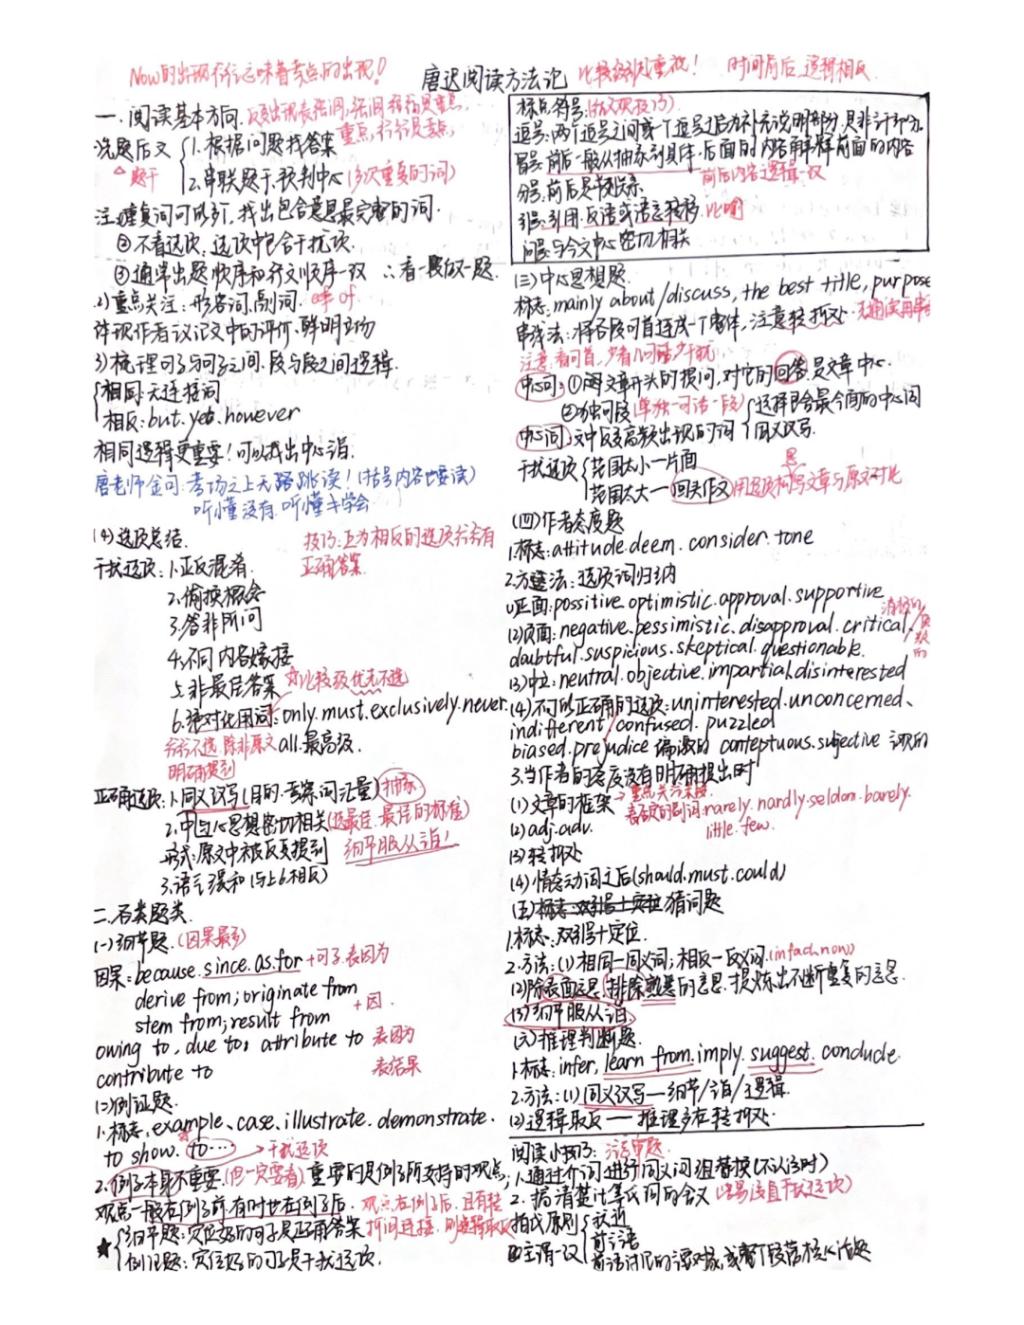 Now的出现行行意味着考点的出现!
唐迟阅读方法论
比较级引起重视!
时间前后,逻辑相反
一.阅读基本方向.
重点,行行是重点
先题后文 1.根据问题找答案
△题干 2.串联题干,预判中心(多次重复的词)
注:①重复词可以叠加,找出包含意思最完整的词.
②不看选项.选项中包含干扰项
③通常出题顺序和行文顺序一致 ∴看一段做一题.
2)重点关注:形容词,副词.
体现作者议论文中的评价.鲜明立场
3)梳理句子与句子之间.段与段之间逻辑.
相同:无连接词
相反:but.yet.however
相同逻辑更重要!可以找出中心词.
唐老师金句:考场之上无跳读!(括号内容也要读)
听懂没有,听懂才学会
(4)选项总结.
技巧:互为相反的选项行行有正确答案.
干扰选项:1.正反混淆.
2.偷换概念
3.答非所问
4.不同内容嫁接
5.非最佳答案 ☆比较级优先不选
6.绝对化用词:only.must.exclusively.never.
行行不选,除非原文明确提到
all.最高级.
正确选项:1.同义改写(目的:考察词汇量)抽象
2.中心思想密切相关(选最佳.最佳的标准)
形式:原文中被反复提到 细节服从主旨!
3.语气缓和(与上6相反)
二.各类题类
(一)细节题.(因果最多)
因果:because.since.as.for +句子.表因为
derive from;originate from
stem from;result from +因.
owing to.due to;attribute to 表因为
contribute to 表结果
(二)例证题.
1.标志.example、case.illustrate.demonstrate.
to show.to… →干扰选项
2.例子本身不重要.(但一定要看)重要的是例子所支持的观点;
观点一般在例子前,有时也在例子后.观点在例子后,且有转折词连接,则逻辑取反
★ 细节题:定位好的句子是正确答案
例证题:定位好的句子是干扰选项.
标点符号:(做文快技巧)
逗号:两个逗号之间或一个逗号之后为补充说明部分,是非主干部分.
冒号:前后一般从抽象到具体,后面的内容解释前面的内容
前后内容逻辑一致
分号:前后是并列关系.
引号:引用.反语或语意转移.比喻
问号:与全文中心密切相关
(三)中心思想题.
标志:mainly about/discuss, the best title, purpose
串线法:将各段句首连成一个整体,注意转折处.
中心句:①问文章开头的提问,对它的回答是文章中心.
②独句段(单独一句话一段) 选择包含最全面的中心词
中心词:文中反复高频出现的词 同义改写.
干扰选项 范围太小—片面
范围太大—回头作文 用选项构思文章与原文对比
(四)作者态度题
1.标志:attitude.deem.consider.tone
2.方法:选项词归纳
(1)正面:possitive.optimistic.approval.supportive
(2)负面:negative.pessimistic.disapproval.critical.
daubtful.suspicious.skeptical.questionable.
(3)中立:neutral.objective.impartial.disinterested
(4)不可以正确的选项:uninterested.unconcerned、
indifferent confused.puzzled
biased.prejudice 偏激的 conteptuous.subjective 主观的
3.当作者的态度没有明确提出时
(1)文章的框架
(2)adj.adv. 否定的副词:rarely.hardly.seldom.barely.
little.few.
(3)转折处
(4)情态动词之后(should.must.could)
(五)猜词题
1.标志.双引号+定位.
2.方法:(1)相同—同义词;相反—反义词.(in fact.now)
(2)除表面意思,排除熟悉的意思.提炼出不断重复的意思.
(3)细节服从主旨
(六)推理判断题.
1.标志:infer.learn from.imply.suggest.conclude.
2.方法:(1)同义改写—细节/主旨/逻辑.
(2)逻辑取反—推理多在转折处.
阅读小技巧:方法审题
1.通过介词进行同义词组替换(不认识时)
2.搞清楚计等式词的含义(容易误且干扰选项)
指代原则 就近
前主语
主谓一致